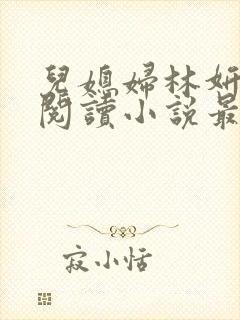 兒媳婦林妍
閱讀小說最
寂小恬